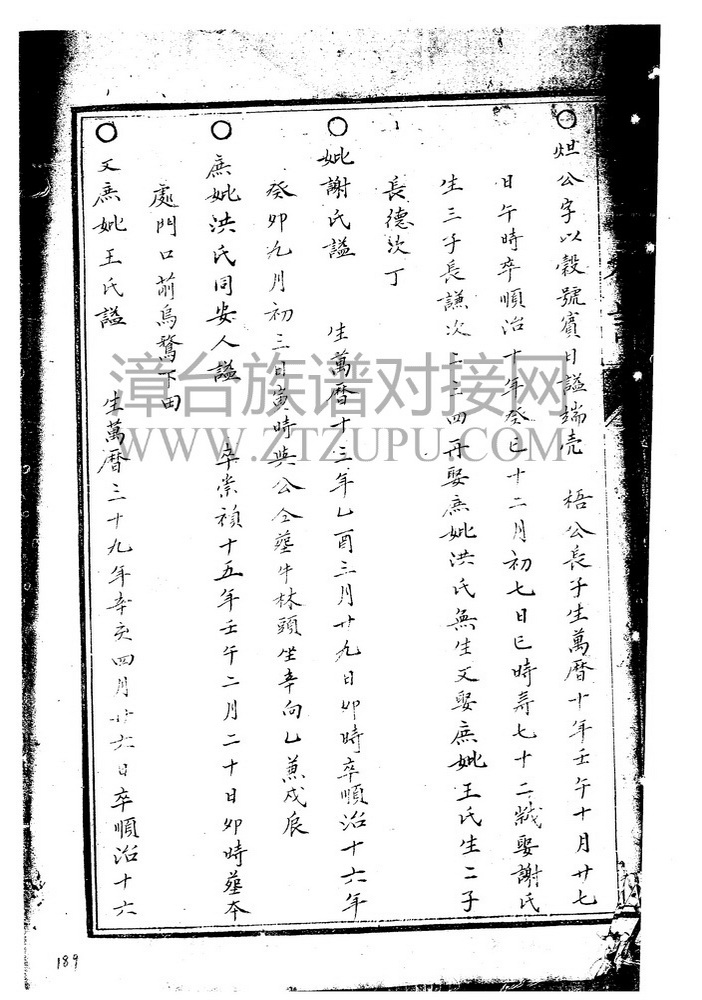 ○炟公字以穀號賓日謚端壳 梧公長子生萬曆十年壬午十月廿七
日午時卒順治十年癸巳十二月初七日巳時寿七十二歲娶謝氏
生三子長謙次二三四再娶庶妣洪氏無生又娶庶妣王氏生二子
長德次丁
○妣謝氏謚 生萬曆十三年乙酉三月廿九日卯時卒順治十六年
癸卯九月初三日寅時與公仝塟牛林頭坐辛向乙兼戍辰
○庶妣洪氏同安人謚 卒崇禎十五年壬午二月二十日卯時塟本
處門口前烏鶖下田
○又庶妣王氏謚 生萬曆三十九年辛亥四月廿六日卒順治十六
漳台族谱对接网
WWW.ZTZUPU.COM
189